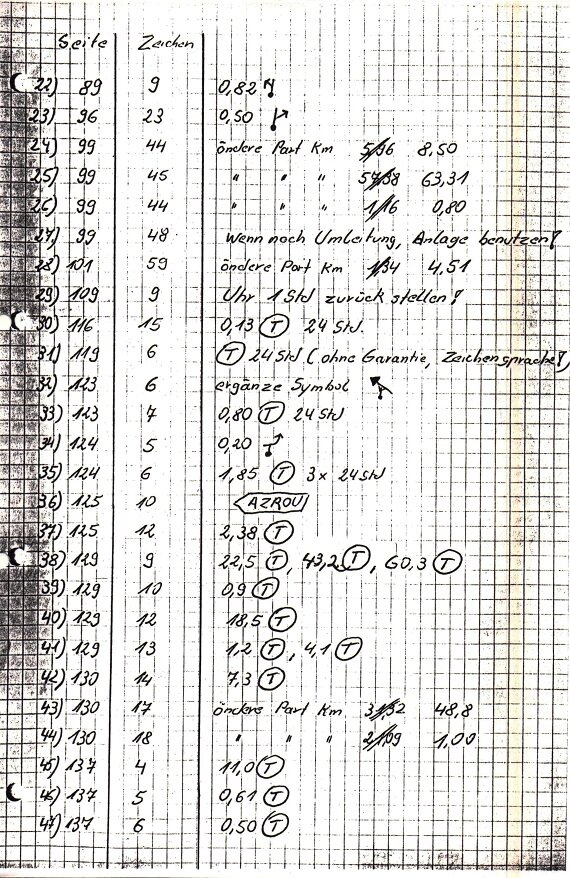 Seite Zeichen
22) 89 9 0,82
23) 96 23 0,50
24) 99 44 öndere Part Km 8,50
25) 99 45 " " " 63,31
26) 99 44 " " " 1/16 0,80
27) 99 48 Wenn noch Umleitung, Anlage benutzen!
28) 101 59 öndere Part Km 4,51
29) 109 9 Uhr 1 Std zurück stellen!
30) 116 15 0,13 T 24 Std.
31) 119 6 T 24 Std (ohne Garantie, Zeichensprache!)
32) 123 6 ergänze Symbol
33) 123 7 0,80 T 24 Std
34) 124 5 0,20
35) 124 6 1,85 T 3 x 24 Std
36) 125 10 AZROU
37) 125 12 2,38 T
38) 129 9 22,5 T, 43,2 T, 60,3 T
39) 129 10 0,9 T
40) 129 12 18,5 T
41) 129 13 1,2 T, 4,1 T
42) 130 14 7,3 T
43) 130 17 öndere Part Km 48,8
44) 130 18 " " " 1,00
45) 137 4 11,0 T
46) 137 5 0,61 T
47) 137 6 0,50 T